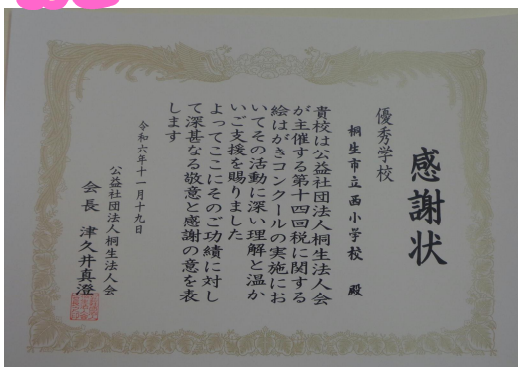 感謝状
優秀学校
桐生市立西小学校 殿
貴校は公益社団法人桐生法人会
が主催する第十四回税に関する
絵はがきコンクールの実施にお
いてその活動に深い理解と温か
いご支援を賜りました
よってここにそのご功績に対し
て深甚なる敬意と感謝の意を表
します
令和六年十一月十九日
公益社団法人桐生法人会
会長 津久井真澄